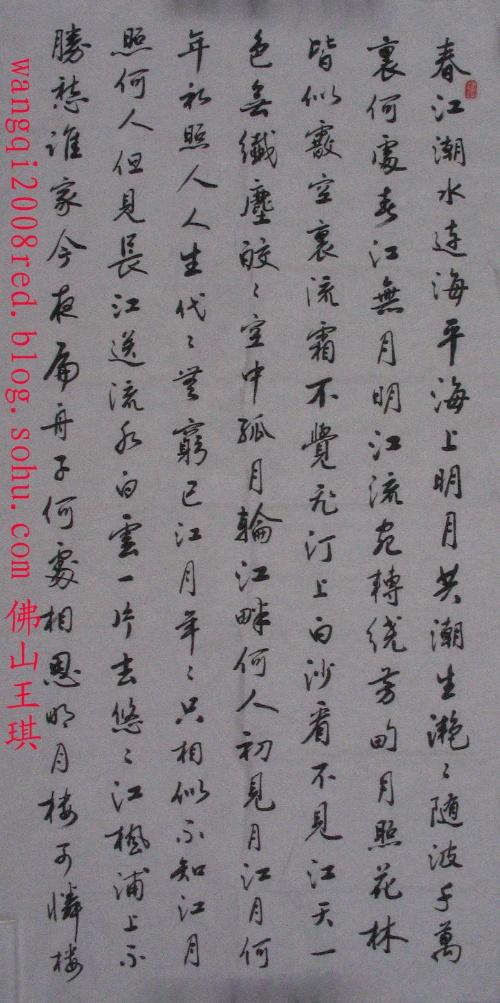 春江潮水连海平海上明月共潮生灧〻随波千萬
裏何處春江無月明江流宛轉绕芳甸月照花林
皆似霰空裏流霜不覺飛汀上白沙看不見江天一
色無纖塵皎〻空中孤月輪江畔何人初見月江月何
年初照人人生代〻無窮已江月年〻只相似不知江月
照何人但見長江送流水白雲一片去悠〻江楓浦上不
勝愁誰家今夜扁舟子何處相思明月樓可憐樓
wangqi2008red.blog.sohu.com 佛山王琪